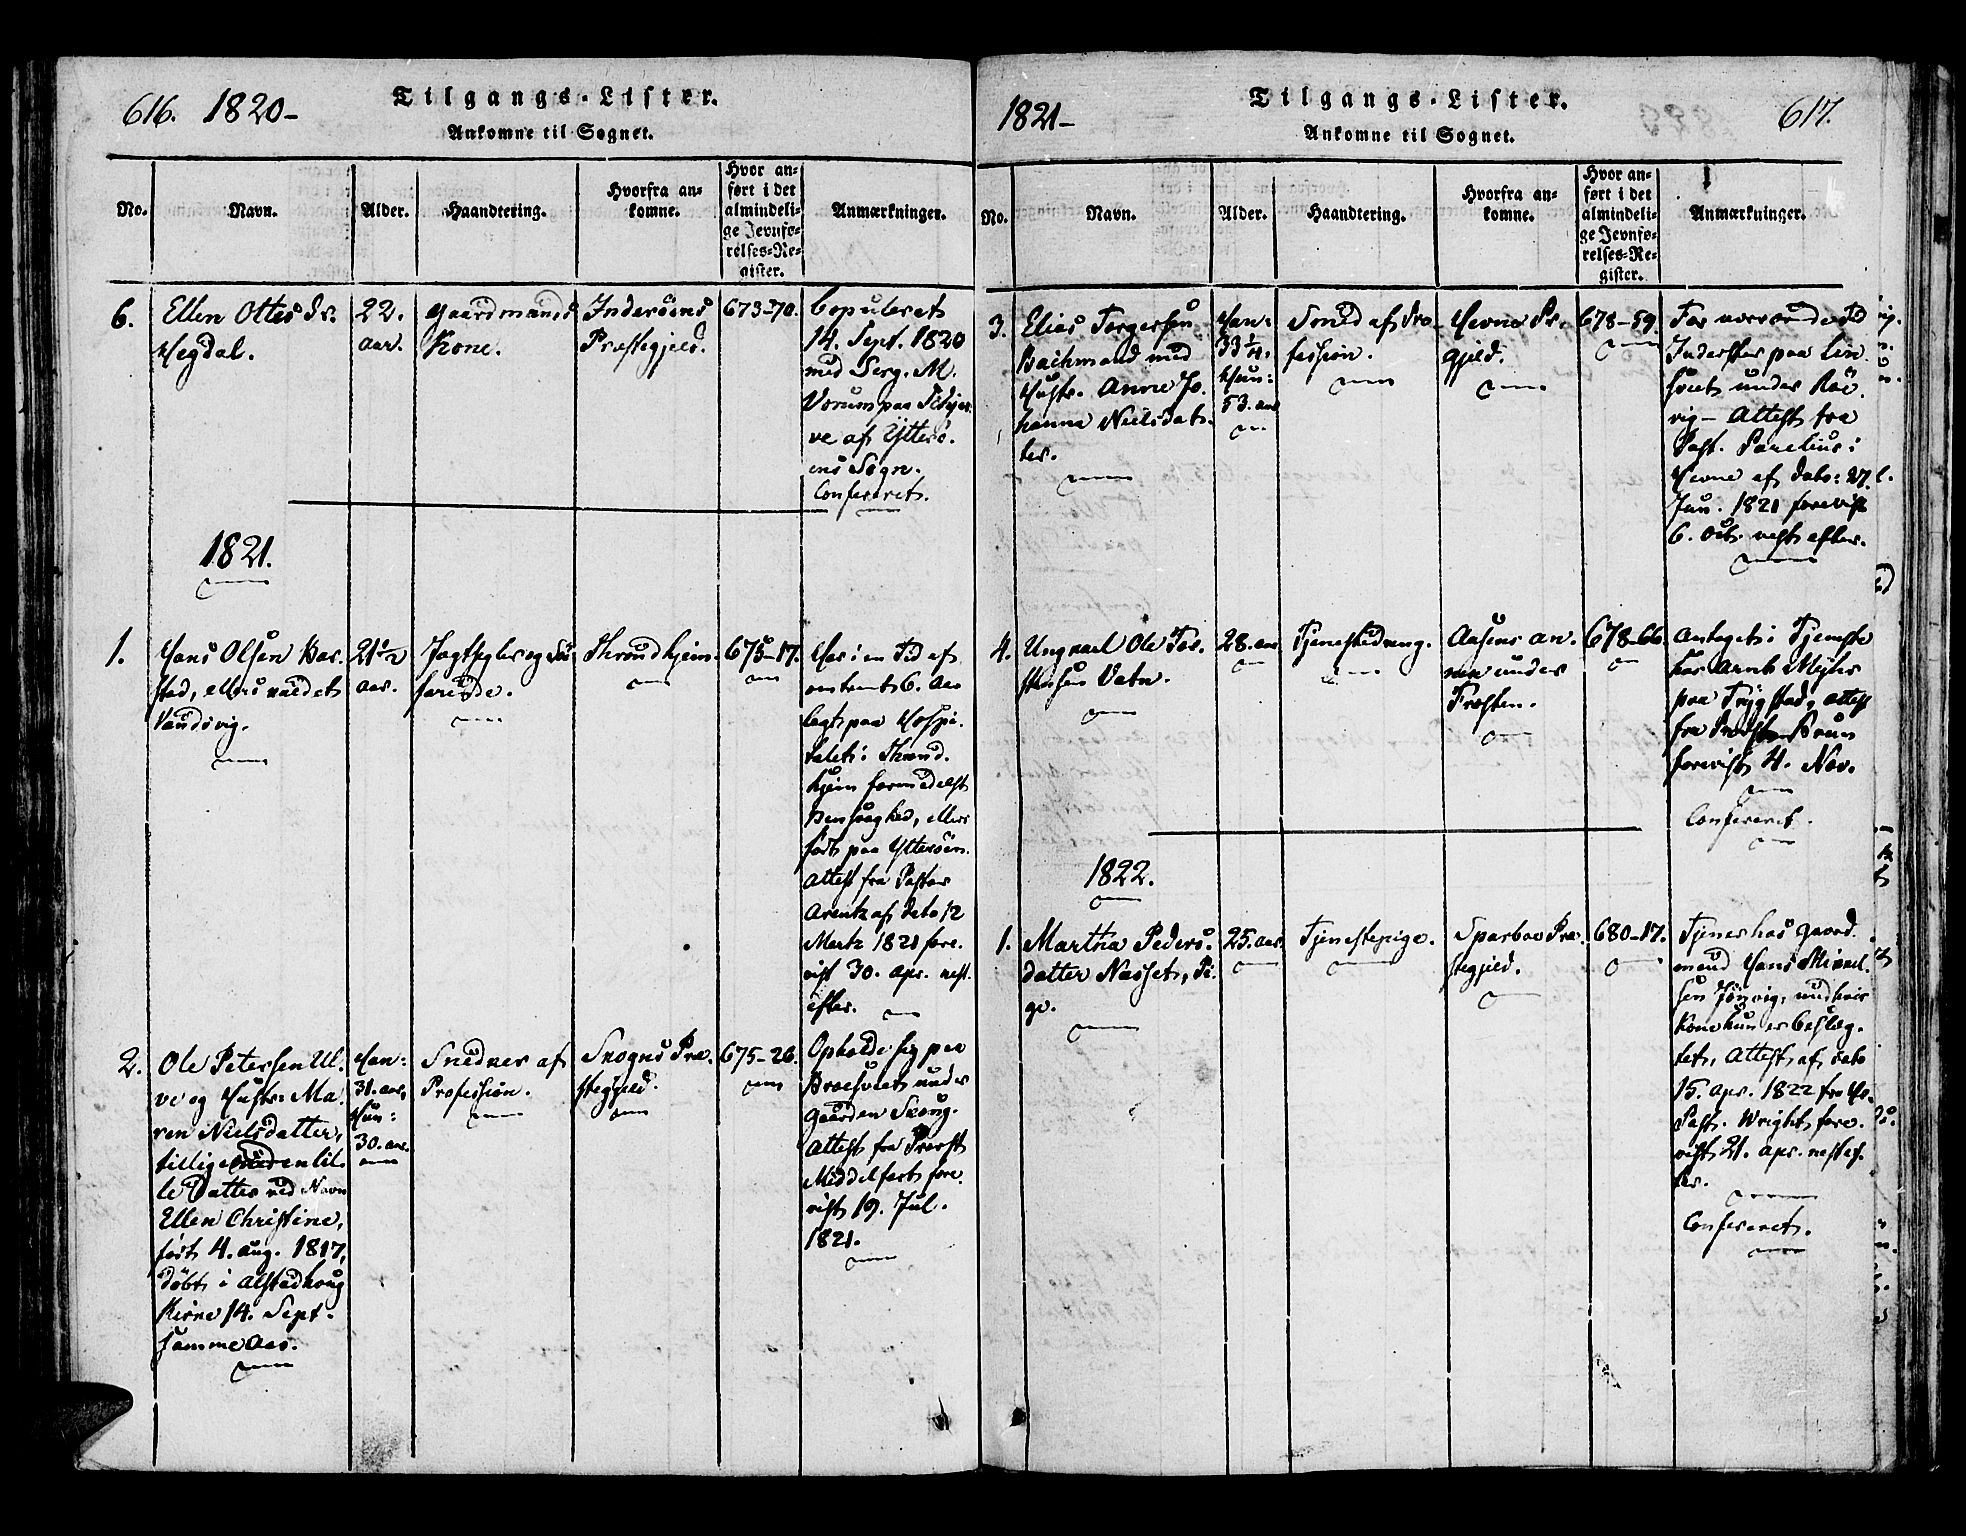 616. 1820-
Tilgangs-Lister.
Ankomne til Sognet.
No.
Navn.
Alder.
Haandtering.
Hvorfra an=
komne.
Hvor an=
ført i det
almindeli=
ge Jevnfø=
relses=Re=
gister.
Anmærkninger.
6.
Ellen Ottesdr.
Hegdal.
22.
aar.
Gaardmands
Kone.
Inderöens
Præstegjeld.
673-70.
Copuleret
14. Sept. 1820
med Serg. M.
Vorum paa
ve af Ytterö-
ens Sogn.
Confereret.
1821.
1.
Hans Olsen Bar-
stad, ellers kaldet
Vandvig.
21 1/2
aar.
Jagtsegler og Sö-
farende.
Throndhjem.
675-17.
Har i en Tid af
omtrent 6. Aar
lagt paa Hospi-
talet i Thrond-
hjem formedelst
Bensvaghed, ellers
født paa Ytteröen.
Attest fra Pastor
Arentz af dato 12
Martz 1821 fore-
vist 30. Apr. nest-
efter.
2.
Ole Petersen Ul-
ve og Hustr: Ma-
ren Nielsdatter,
tillige med en lil-
le Datter ved Navn
Ellen Christine,
født 4. Aug. 1817,
döbt i Alstadhoug
Kirke 14. Sept.
samme Aar.
Han:
31. aar,
Hun:
30. aar.
Snedker af
Profession.
Skogns Præ-
stegjeld.
675-26.
Opholder sig paa
under
Gaarden
Attest fra Provst
Middelfart fore-
vist 19. Jul.
1821.
1821-
Tilgangs-Lister.
Ankomne til Sognet.
617.
No.
Navn.
Alder.
Haandtering.
Hvorfra an=
komne.
Hvor an=
ført i det
almindeli=
ge Jevnfø=
relses=Re=
gister.
Anmærkninger.
3.
Elias Torgersen
Bachmand med
Hustr. Anne Jo-
hanna Nielsdat-
ter.
Han:
33 1/4.
Hun:
53. aar
Smed af Pro-
fession.
Hevne Pr.
gjeld.
678-59.
For nærværende Tid
Inderster paa Lin-
under
vig - Attest fra
Past. Parelius i
Hevne af dato: 27.
Jun. 1821 forevist
6. Oct. nest efter.
4.
Ungkarl Ole Tor-
stensen Vatn.
28. aar
Tjenestedreng.
Aasens an-
nex under
Frosten.
678-66.
Antaget i Tjeneste
hos Arnt
paa Trygstad, Attest
fra Provsten Bruun
forevist 4. Nov.
Confereret.
1822.
1.
Martha Peders-
datter Nasset, Pi-
ge.
25. aar.
Tjenestepige.
Sparboe Præ-
stegjeld.
680-17.
Tjener hos Gaard-
mand Hans Mikkel-
sen Jönvig, med hvis
Kone hun er beslæg-
tet, Attest af dato
15. Apr. 1822 fra Hr.
Past. Wright fore-
vist 21. Apr. nestef-
ter.
Confereret.